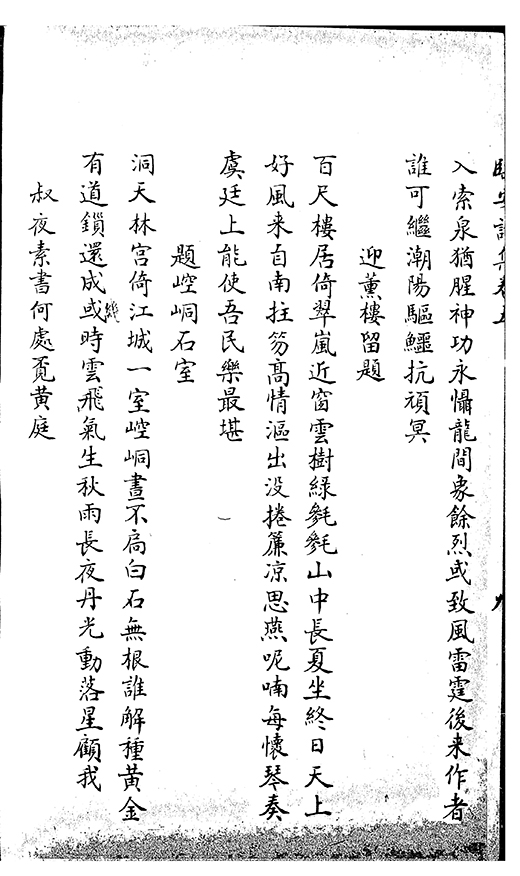 入索泉猶腥神功永懾龍間象餘烈或致風雷霆後来作者
誰可繼潮陽驅鱷抗頑冥
迎薰樓留題
百尺樓居倚翠嵐近窗雲樹綠毿毿山中長夏坐終日天上
好風来自南拄笏髙情漚出没捲簾凉思燕呢喃每懷琴奏
虞廷上能使吾民樂最堪
題崆峒石室
洞天林宫倚江城一室崆峒晝不扄白石無根誰解種黄金
有道鎖還成或幾時雲飛氣生秋雨長夜丹光動落星顧我
叔夜素書何處覔黄庭